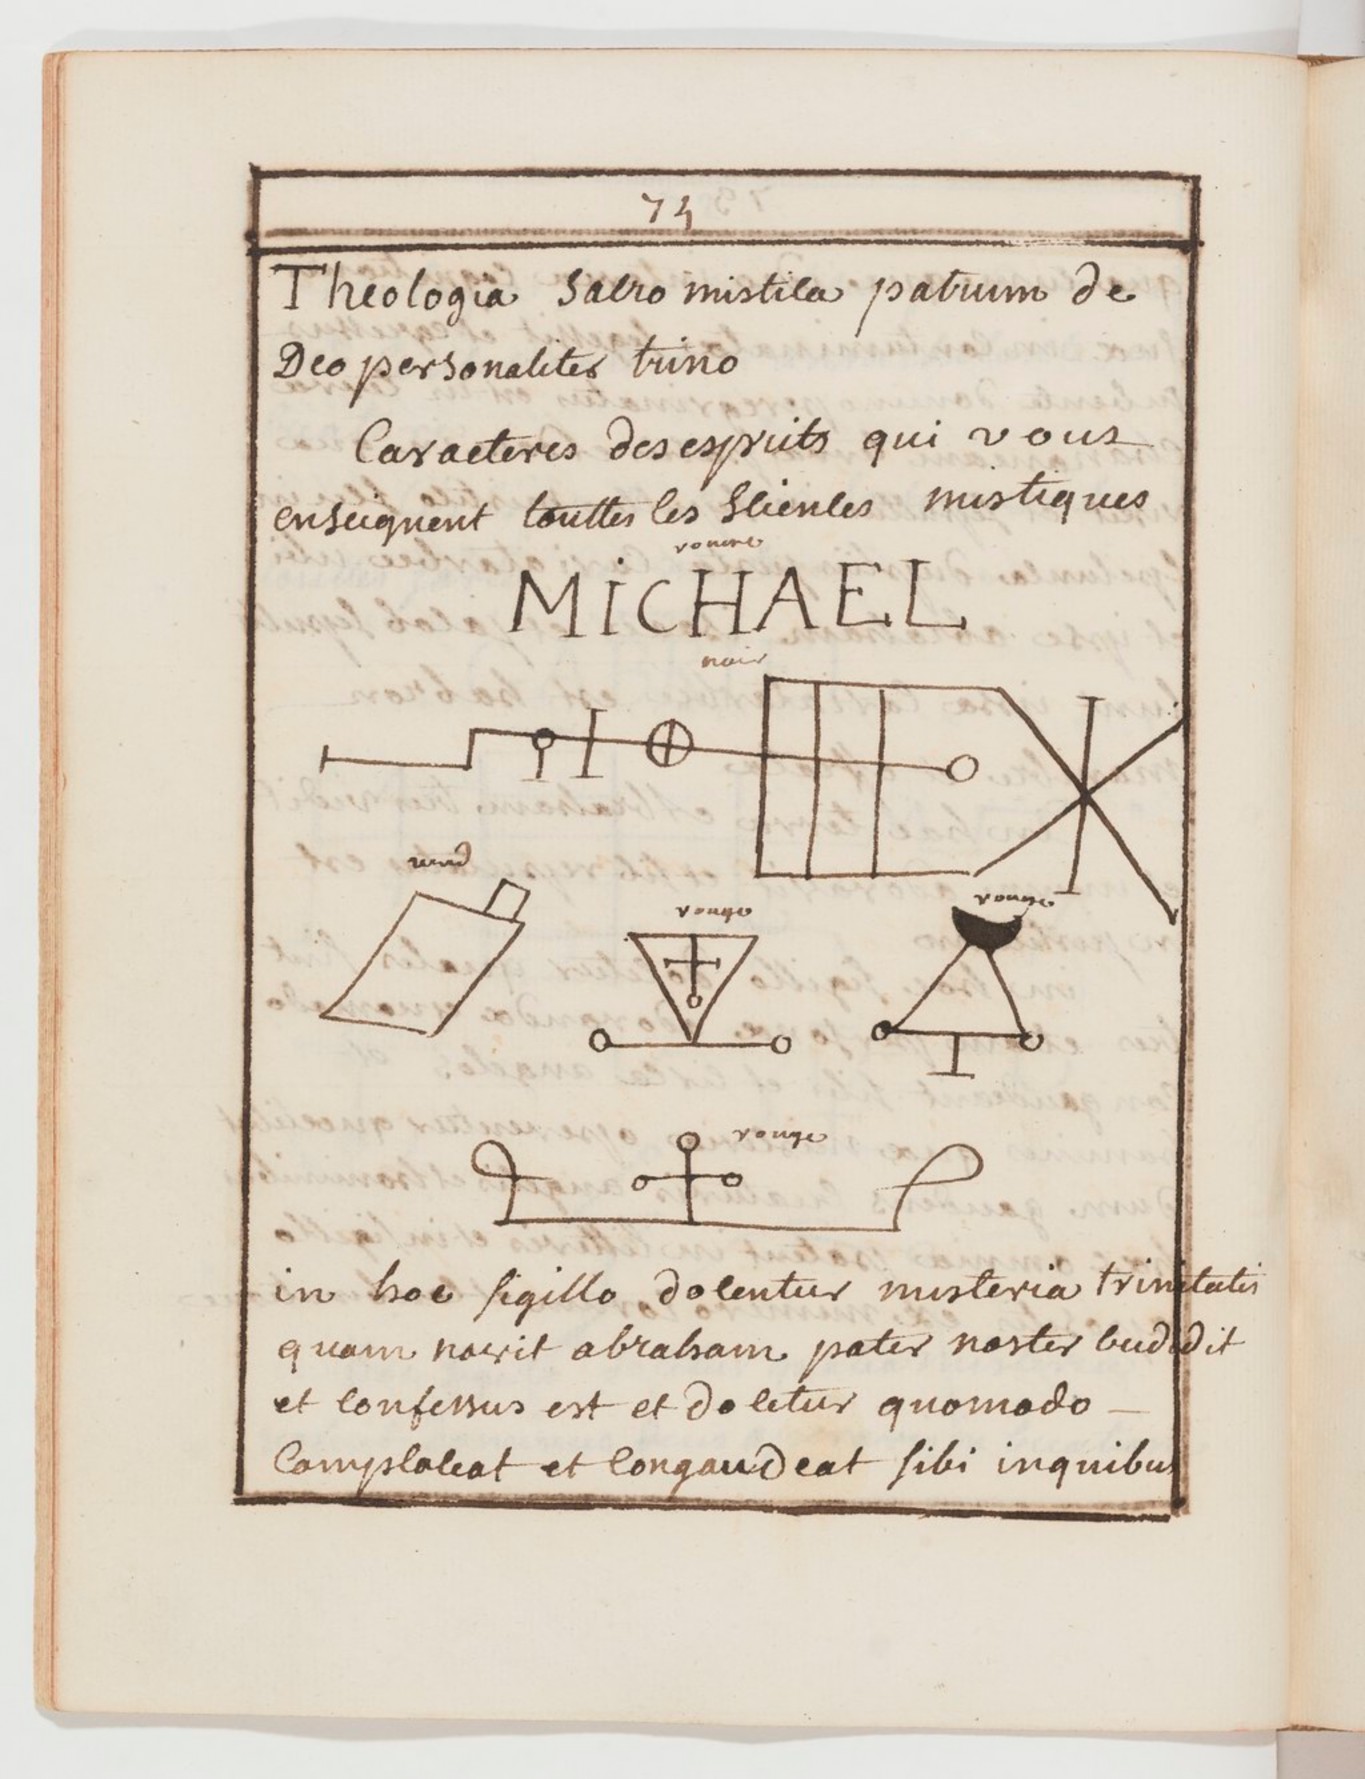 74
Theologia Sacro mistica patrum de
Deo personaliter trino
Caracteres des espruits qui vous
enseignent touttes les Sciences mistiques
rouure
MiCHAEL
noir
rouge
rouge
rouge
in hoc sigillo docentur misteria trinitatis
quam novit abraham pater noster
et confessus est et docetur quomodo —
Complaceat et Congaudeat sibi inquibus